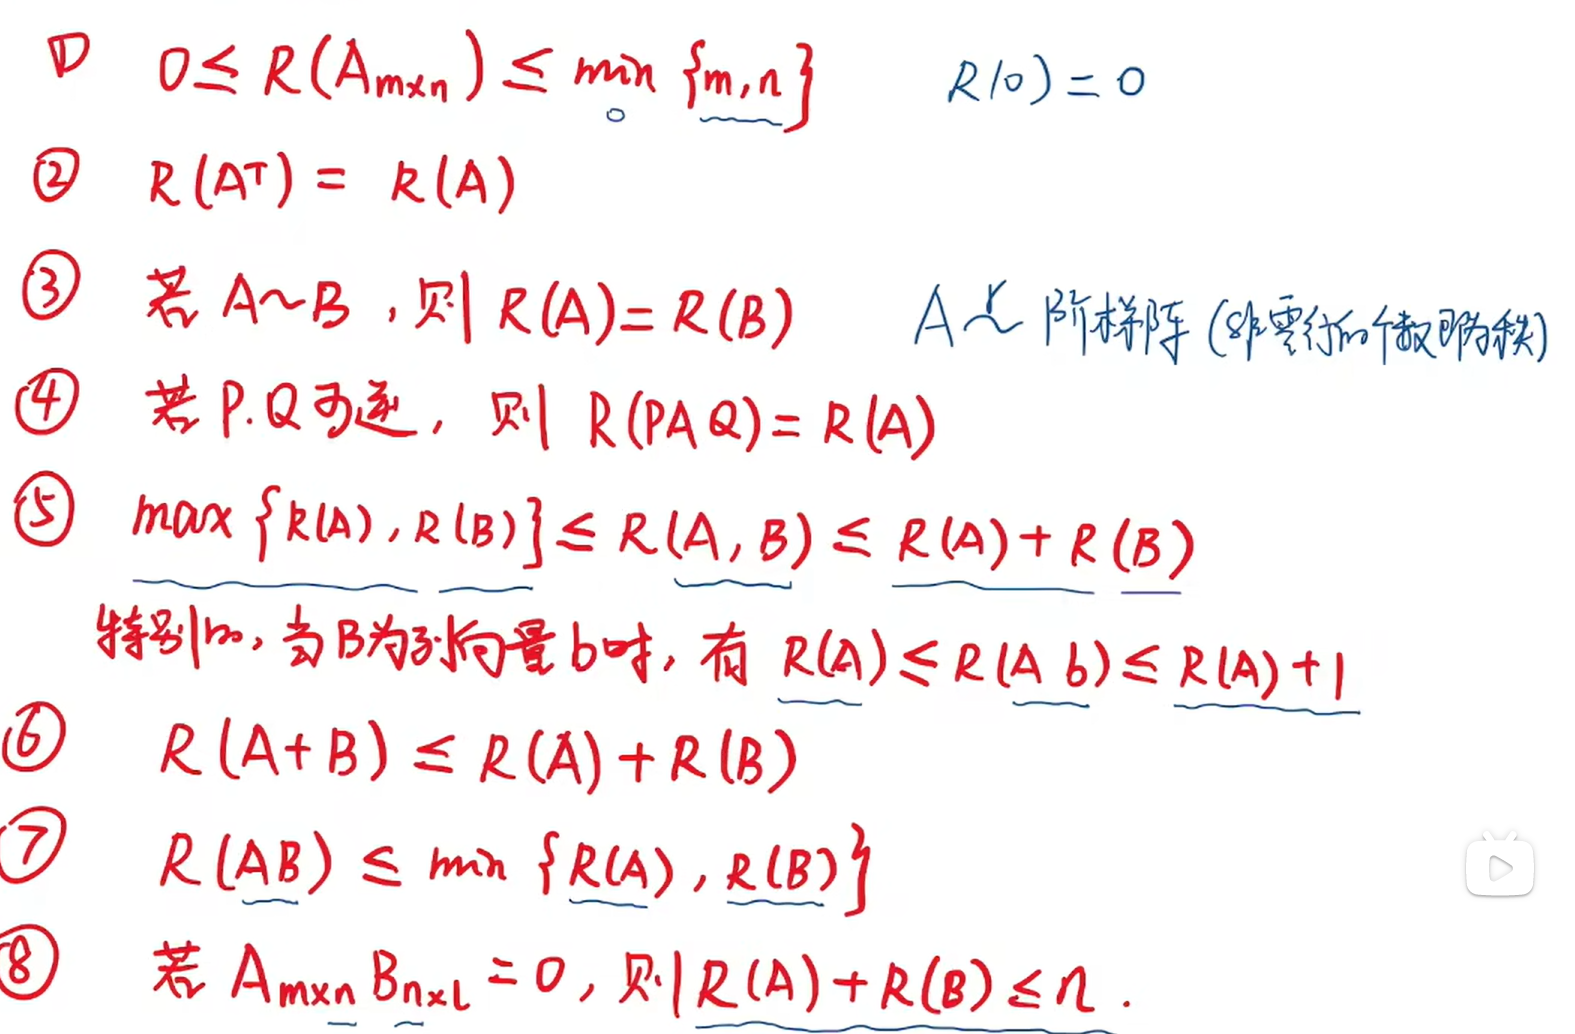 ① 0≤R(Aₘₓₙ)≤min{m,n} R(0)=0
② R(Aᵀ)=R(A)
③ 若A~B,则R(A)=R(B) A ~ʳ 阶梯阵(非零行的个数即为秩)
④ 若P.Q可逆,则R(PAQ)=R(A)
⑤ max{R(A),R(B)}≤R(A,B)≤R(A)+R(B)
特别的,当B为列向量b时,有R(A)≤R(A b)≤R(A)+1
⑥ R(A+B)≤R(A)+R(B)
⑦ R(AB)≤min{R(A),R(B)}
⑧ 若AₘₓₙBₙₓₗ=0,则R(A)+R(B)≤n.